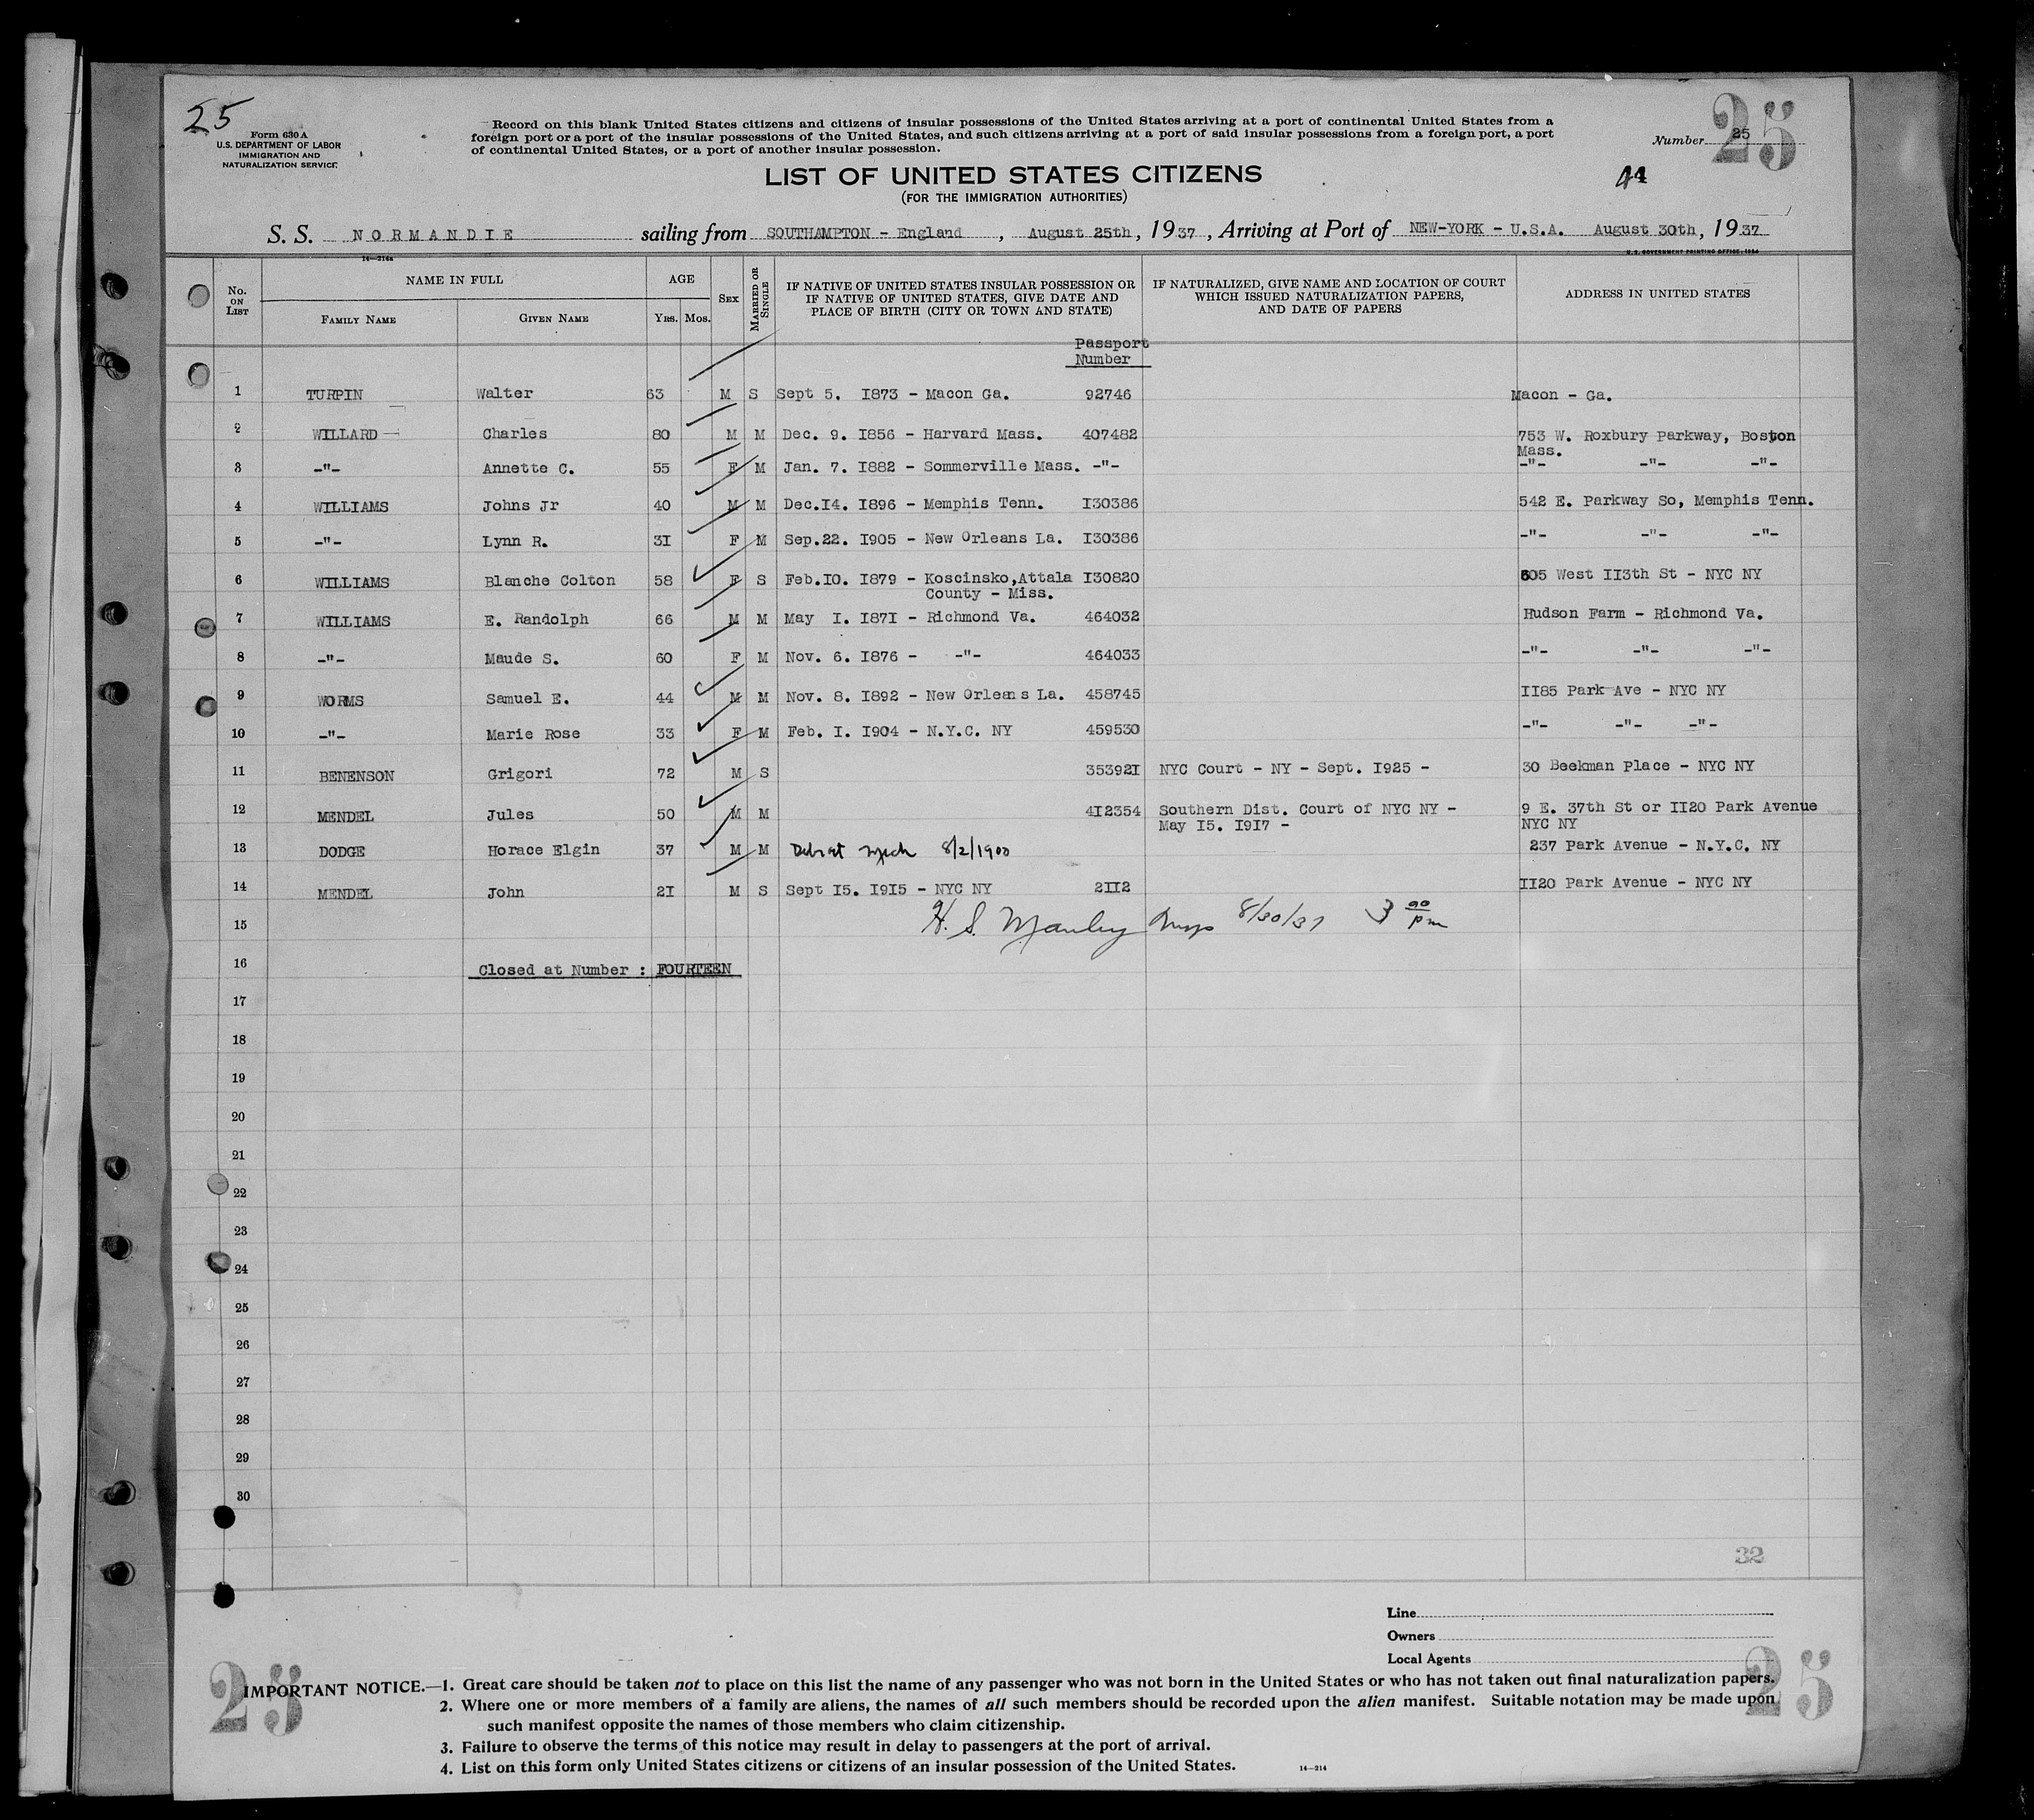 25
25
Form 630 A
U.S. DEPARTMENT OF LABOR
IMMIGRATION AND
NATURALIZATION SERVICE
Record on this blank United States citizens and citizens of insular possessions of the United States arriving at a port of continental United States from a
foreign port or a port of the insular possessions of the United States, and such citizens arriving at a port of said insular possessions from a foreign port, a port
of continental United States, or a port of another insular possession.
Number 25
LIST OF UNITED STATES CITIZENS
(FOR THE IMMIGRATION AUTHORITIES)
S. S. NORMANDIE sailing from SOUTHAMPTON - England , August 25th, 1937, Arriving at Port of NEW-YORK - U.S.A. August 30th, 1937
16-214a U.S. GOVERNMENT PRINTING OFFICE: 1934
No. ON LIST NAME IN FULL AGE SEX MARRIED OR SINGLE IF NATIVE OF UNITED STATES INSULAR POSSESSION OR IF NATIVE OF UNITED STATES, GIVE DATE AND PLACE OF BIRTH (CITY OR TOWN AND STATE) IF NATURALIZED, GIVE NAME AND LOCATION OF COURT WHICH ISSUED NATURALIZATION PAPERS, AND DATE OF PAPERS ADDRESS IN UNITED STATES
FAMILY NAME GIVEN NAME YRS. MOS.
Passport
Number
1 TURPIN Walter 63 M S Sept 5. I873 - Macon Ga. 92746 Macon - Ga.
2 WILLARD - Charles 80 M M Dec. 9. I856 - Harvard Mass. 407482 753 W. Roxbury Parkway, Boston
Mass.
3 -"- Annette C. 55 F M Jan. 7. I882 - Sommerville Mass. -"- -"- -"- -"-
4 WILLIAMS Johns Jr 40 M M Dec.I4. I896 - Memphis Tenn. I30386 542 E. Parkway So, Memphis Tenn.
5 -"- Lynn R. 3I F M Sep.22. I905 - New Orleans La. I30386 -"- -"- -"-
6 WILLIAMS Blanche Colton 58 F S Feb.I0. I879 - Koscinsko,Attala I30820 605 West II3th St - NYC NY
County - Miss.
7 WILLIAMS E. Randolph 66 M M May I. I87I - Richmond Va. 464032 Hudson Farm - Richmond Va.
8 -"- Maude S. 60 F M Nov. 6. I876 - -"- 464033 -"- -"- -"-
9 WORMS Samuel E. 44 M M Nov. 8. I892 - New Orleans La. 458745 II85 Park Ave - NYC NY
10 -"- Marie Rose 33 F M Feb. I. I904 - N.Y.C. NY 459530 -"- -"- -"-
11 BENENSON Grigori 72 M S 35392I NYC Court - NY - Sept. I925 - 30 Beekman Place - NYC NY
12 MENDEL Jules 50 M M 4I2354 Southern Dist. Court of NYC NY - 9 E. 37th St or II20 Park Avenue
May I5. I9I7 - NYC NY
13 DODGE Horace Elgin 37 M M Detroit Mich 8/2/1900 237 Park Avenue - N.Y.C. NY
14 MENDEL John 2I M S Sept I5. I9I5 - NYC NY 2II2 II20 Park Avenue - NYC NY
15 H. S. Manley 8/30/37 3 00 pm
16 Closed at Number : FOURTEEN
17
18
19
20
21
22
23
24
25
26
27
28
29
30
32
Line
Owners
Local Agents
25
25
IMPORTANT NOTICE.—1. Great care should be taken not to place on this list the name of any passenger who was not born in the United States or who has not taken out final naturalization papers.
2. Where one or more members of a family are aliens, the names of all such members should be recorded upon the alien manifest. Suitable notation may be made upon
such manifest opposite the names of those members who claim citizenship.
3. Failure to observe the terms of this notice may result in delay to passengers at the port of arrival.
4. List on this form only United States citizens or citizens of an insular possession of the United States. 14—214